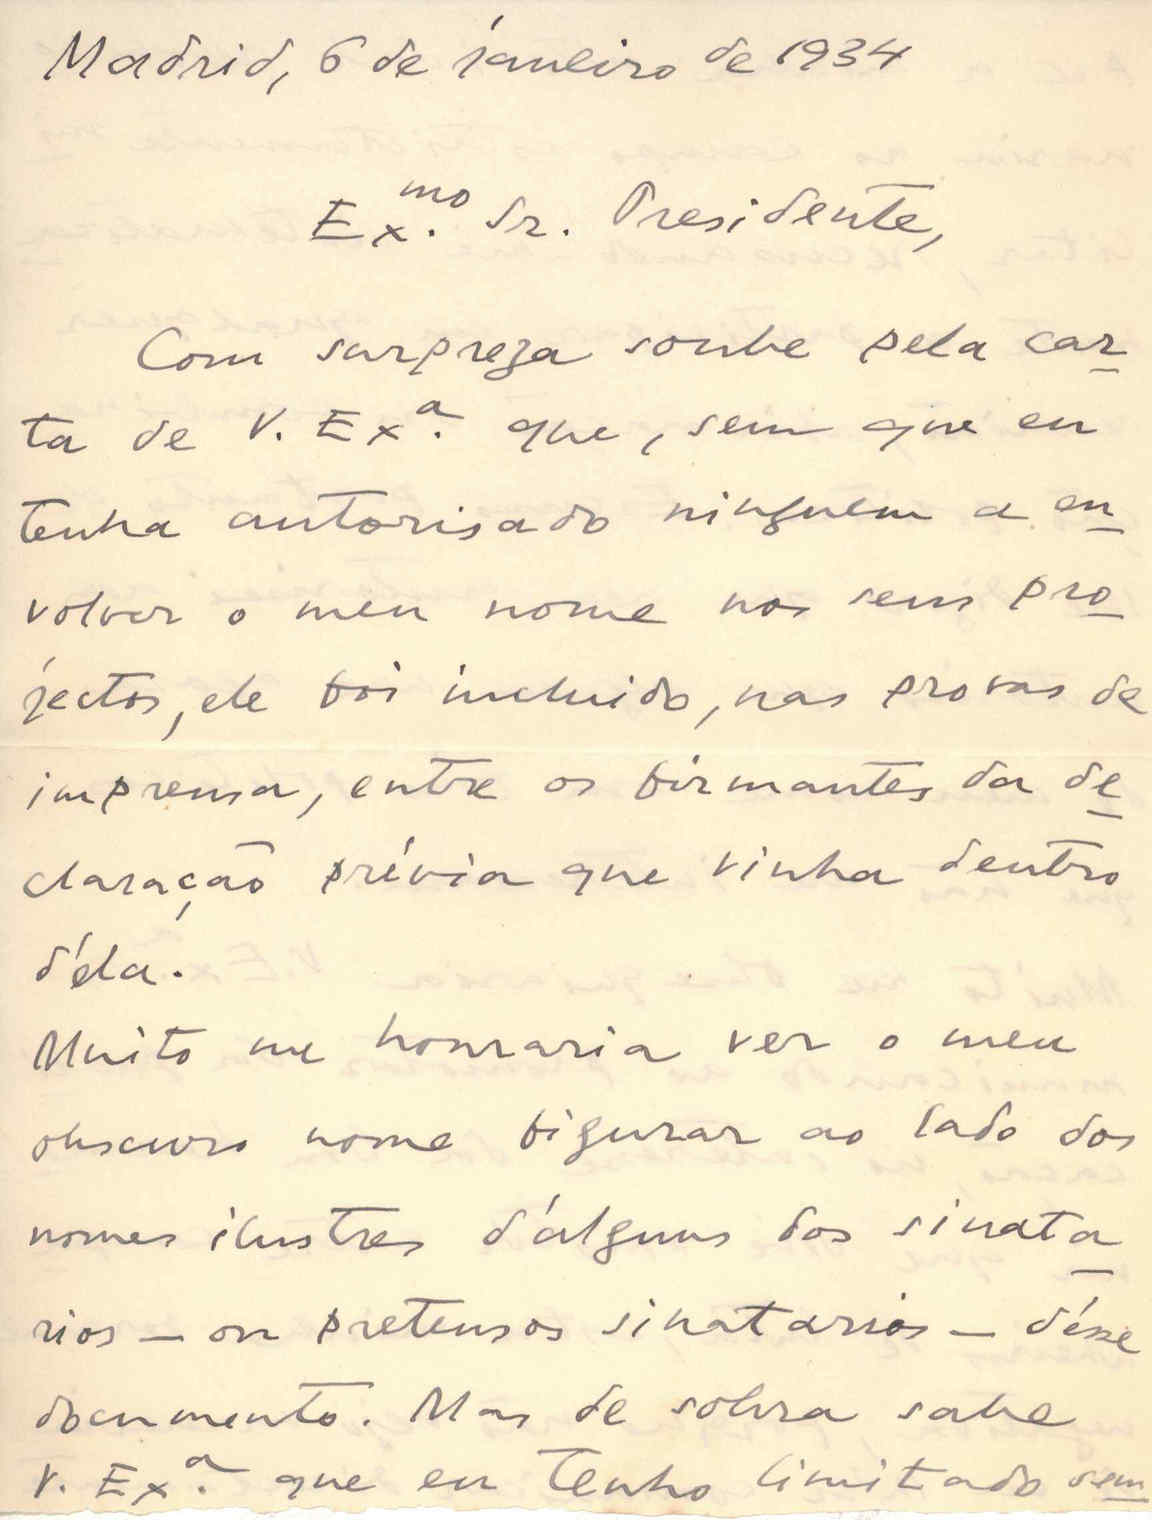 Madrid, 6 de janeiro de 1934
Ex.mo Sr. Presidente,
Com surpreza soube pela car-
ta de V. Ex.a que, sem que eu
tenha autorisado ninguem a en-
volver o meu nome nos seus pro-
jectos, ele foi incluido, nas provas de
imprensa, entre os firmantes da de-
claração prévia que vinha dentro
d'éla.
Muito me honraria ver o meu
obscuro nome figurar ao lado dos
nomes ilustres d'alguns dos sinata-
rios — ou pretensos sinatarios — désse
documento. Mas de sobra sabe
V. Ex.a que eu tenho limitado sem-